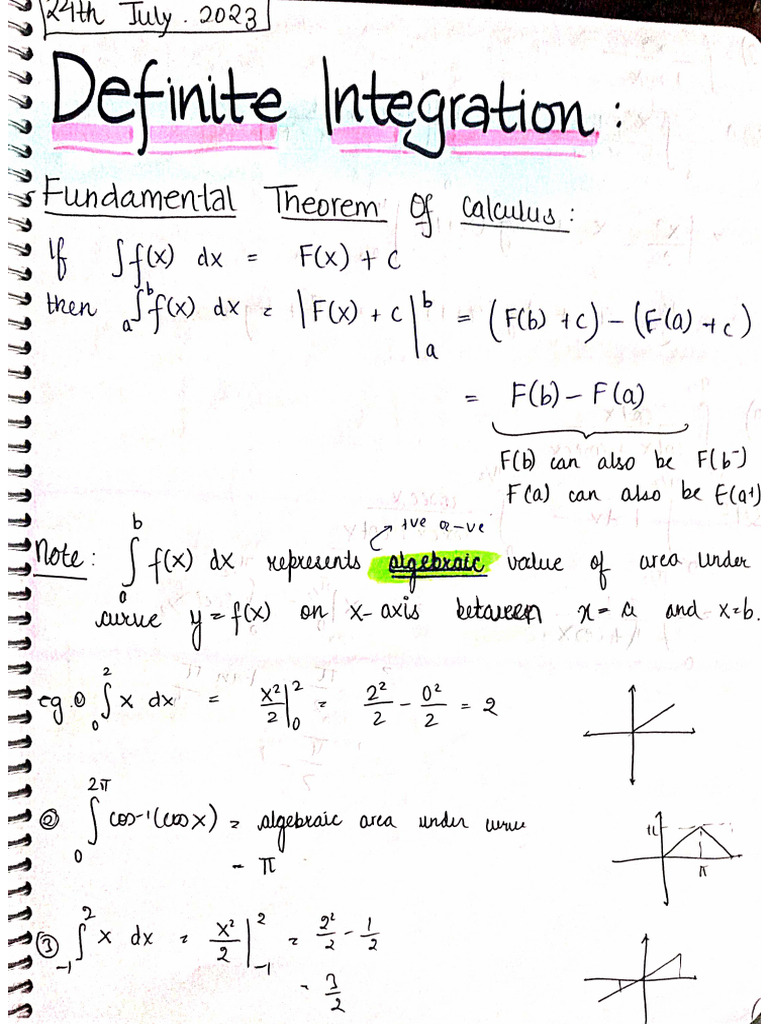 24th July. 2023
Definite Integration:
Fundamental Theorem Of Calculus:
If ∫f(x) dx = F(x) + c
then ₐ∫ᵇ f(x) dx = |F(x) + c|ₐᵇ = (F(b) + c) - (F(a) + c)
= F(b) - F(a)
F(b) can also be F(b⁻)
F(a) can also be F(a⁺)
+ve or -ve
Note: ₀∫ᵇ f(x) dx represents algebraic value of area under
curve y = f(x) on x-axis between x = a and x = b.
eg. ① ₀∫² x dx = x²/2 |₀² = 2²/2 - 0²/2 = 2
② ₀∫²ᴨ cos-1(cos x) = algebraic area under curve
π
π
= π
③ ₋₁∫² x dx = x²/2 |₋₁² = 2²/2 - 1/2
= 3/2